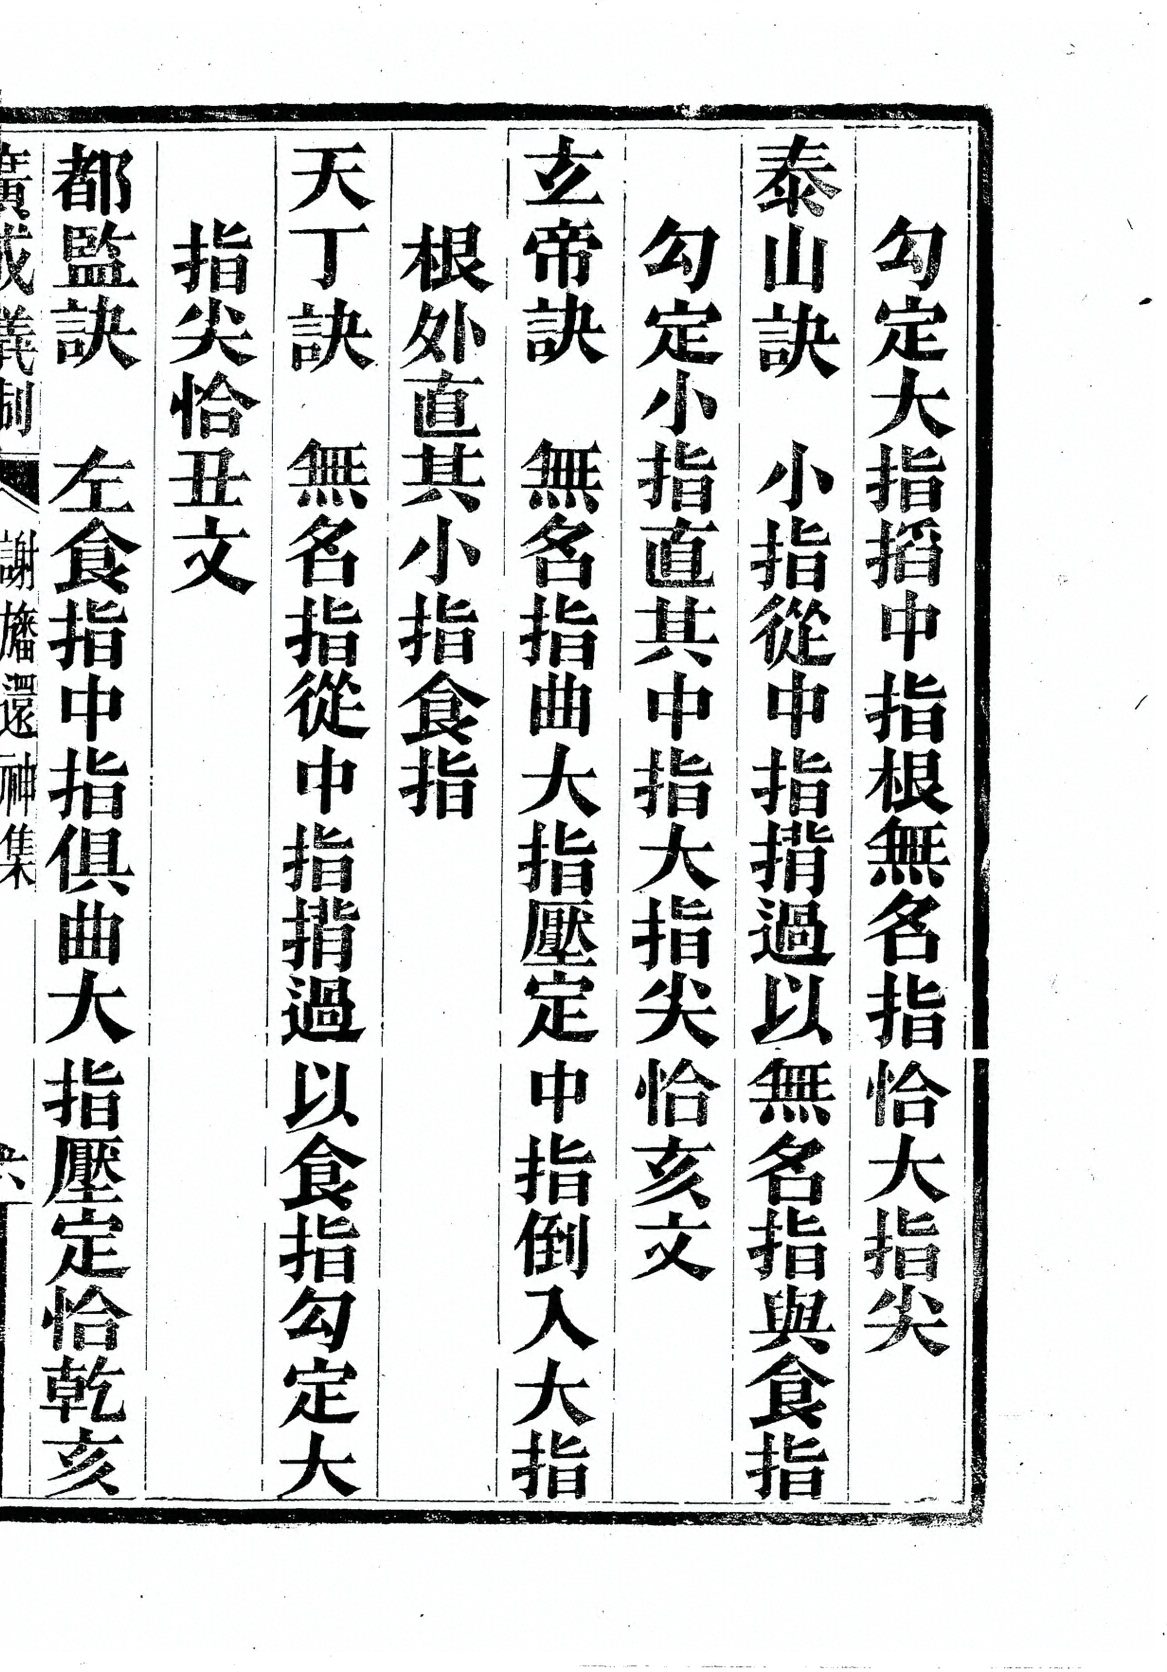 勾定大指搯中指根無名指恰大指尖
泰山訣　小指從中指揹過以無名指與食指
勾定小指直其中指大指尖恰亥文
玄帝訣　無名指曲大指壓定中指倒入大指
根外直其小指食指
天丁訣　無名指從中指揹過以食指勾定大
指尖恰丑文
都監訣　左食指中指俱曲大指壓定恰乾亥
廣成儀制　謝旛還神集　六